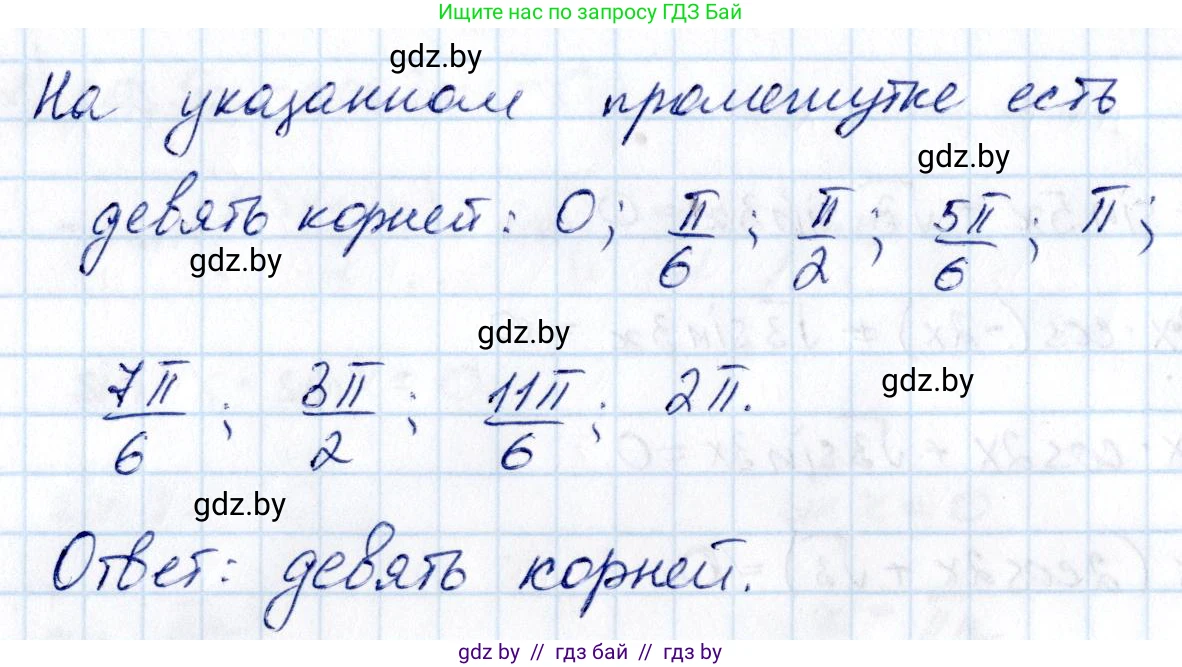 Ищите нас по запросу ГДЗ Бай
gdz.by
На указанном промежутке есть
gdz.by
девять корней: 0; π/6; π/2; 5π/6; π;
gdz.by
gdz.by
7π/6; 3π/2; 11π/6; 2π.
gdz.by
gdz.by
Ответ: девять корней.
gdz.by // гдз бай // gdz by